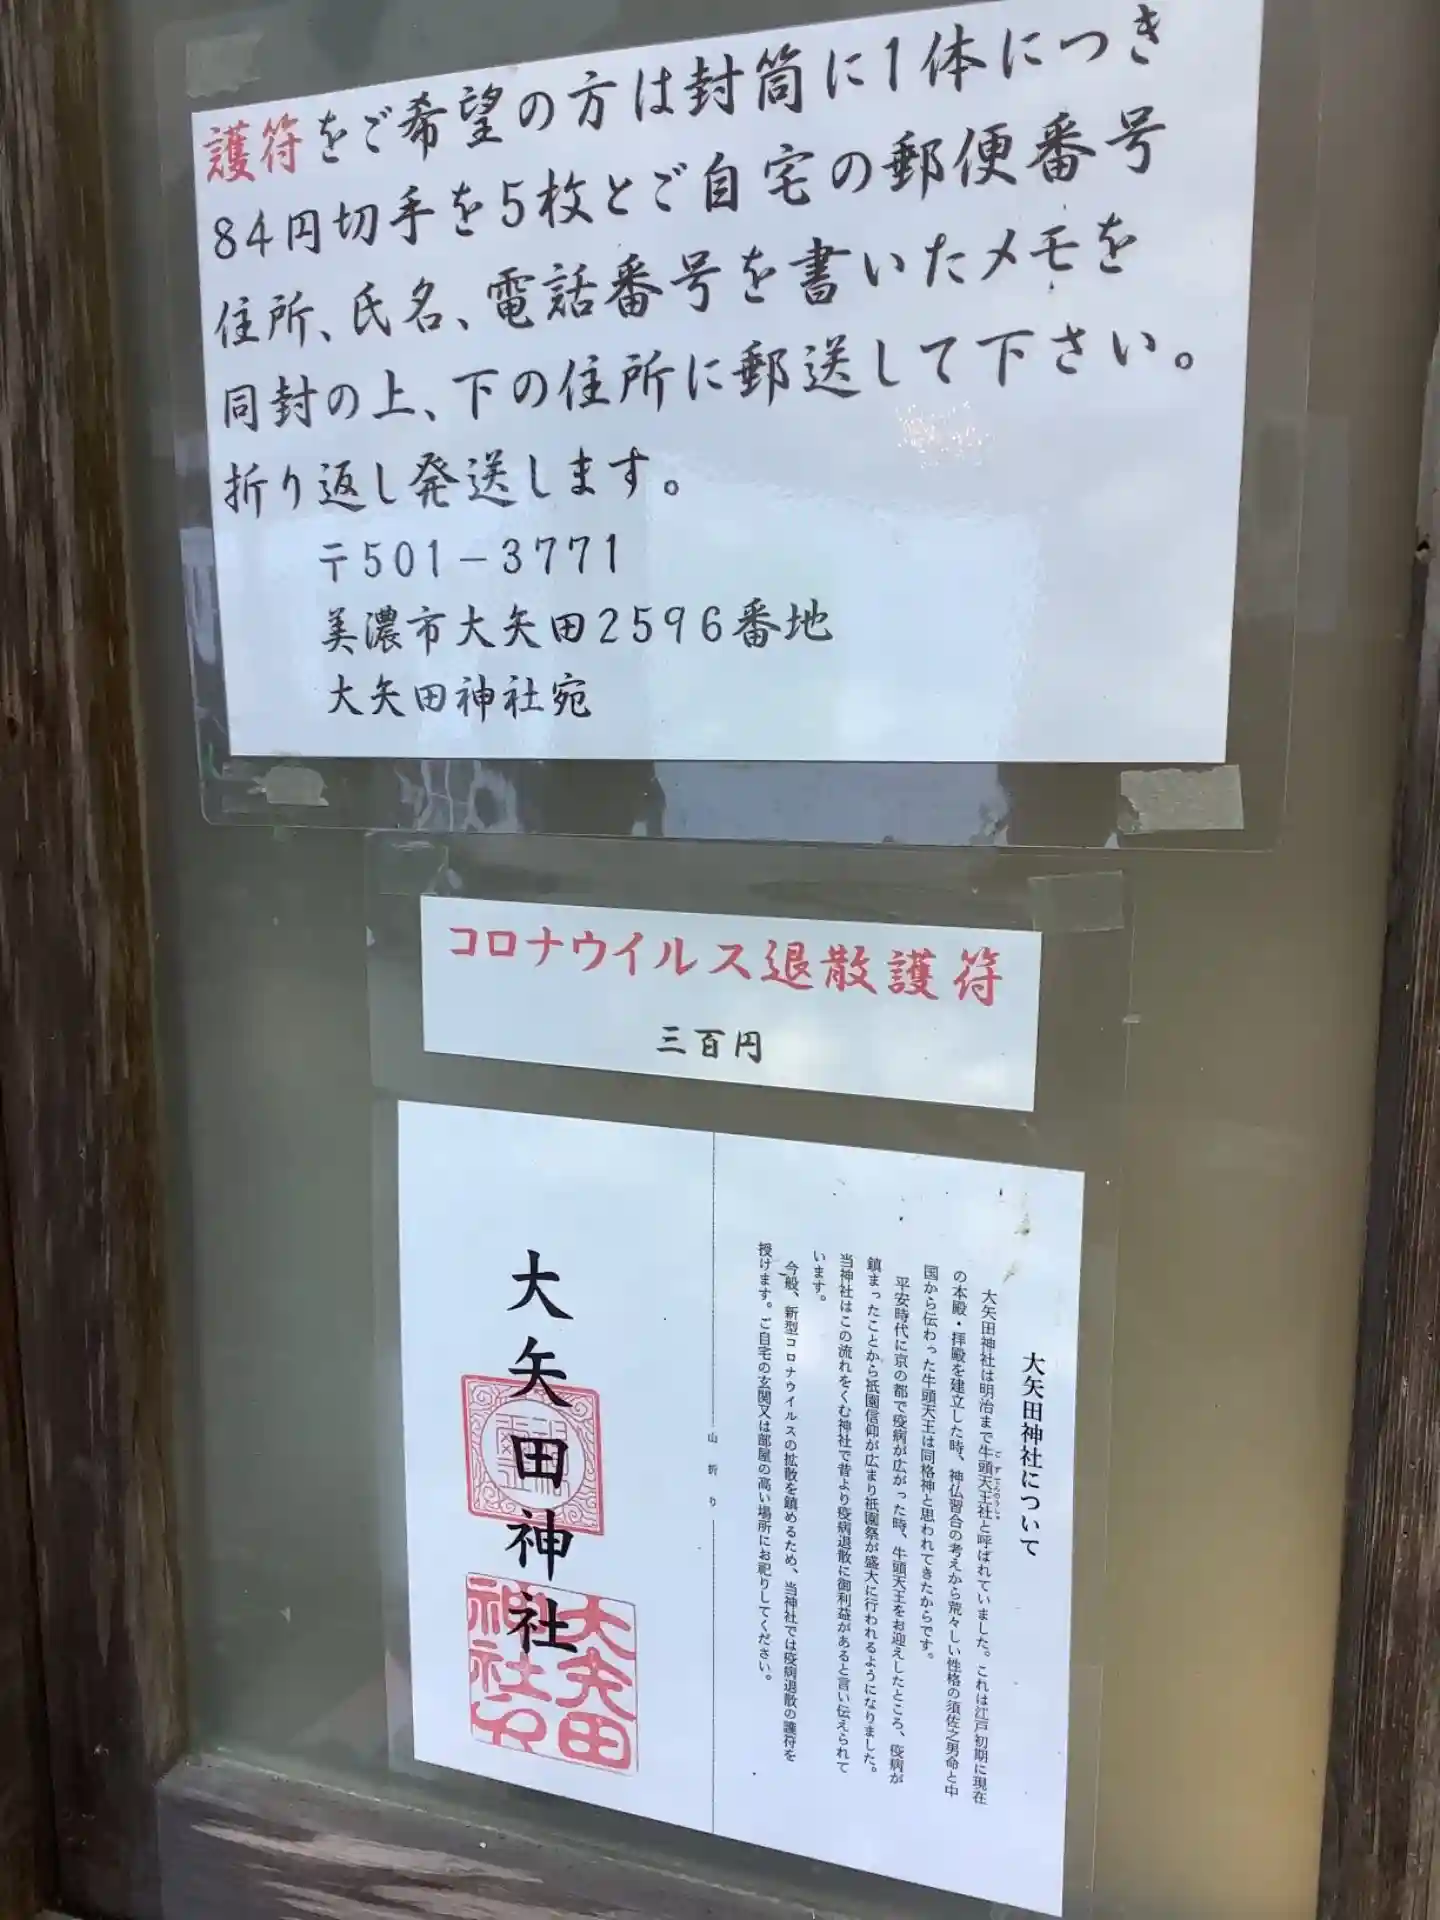 護符をご希望の方は封筒に1体につき
84円切手を5枚とご自宅の郵便番号
住所、氏名、電話番号を書いたメモを
同封の上、下の住所に郵送して下さい。
折り返し発送します。
〒501-3771
美濃市大矢田2596番地
大矢田神社宛
コロナウイルス退散護符
三百円
大矢田神社について
大矢田神社は明治まで牛頭天王社と呼ばれていました。これは江戸初期に現在
の本殿・拝殿を建立した時、神仏習合の考えから荒々しい性格の須佐之男命と中
国から伝わった牛頭天王は同格神と思われてきたからです。
平安時代に京の都で疫病が広がった時、牛頭天王をお迎えしたところ、疫病が
鎮まったことから祇園信仰が広まり祇園祭が盛大に行われるようになりました。
当神社はこの流れをくむ神社で昔より疫病退散に御利益があると言い伝えられて
います。
今般、新型コロナウイルスの拡散を鎮めるため、当神社では疫病退散の護符を
授けます。ご自宅の玄関又は部屋の高い場所にお祀りしてください。
山折り
大矢田神社
大矢田
神社